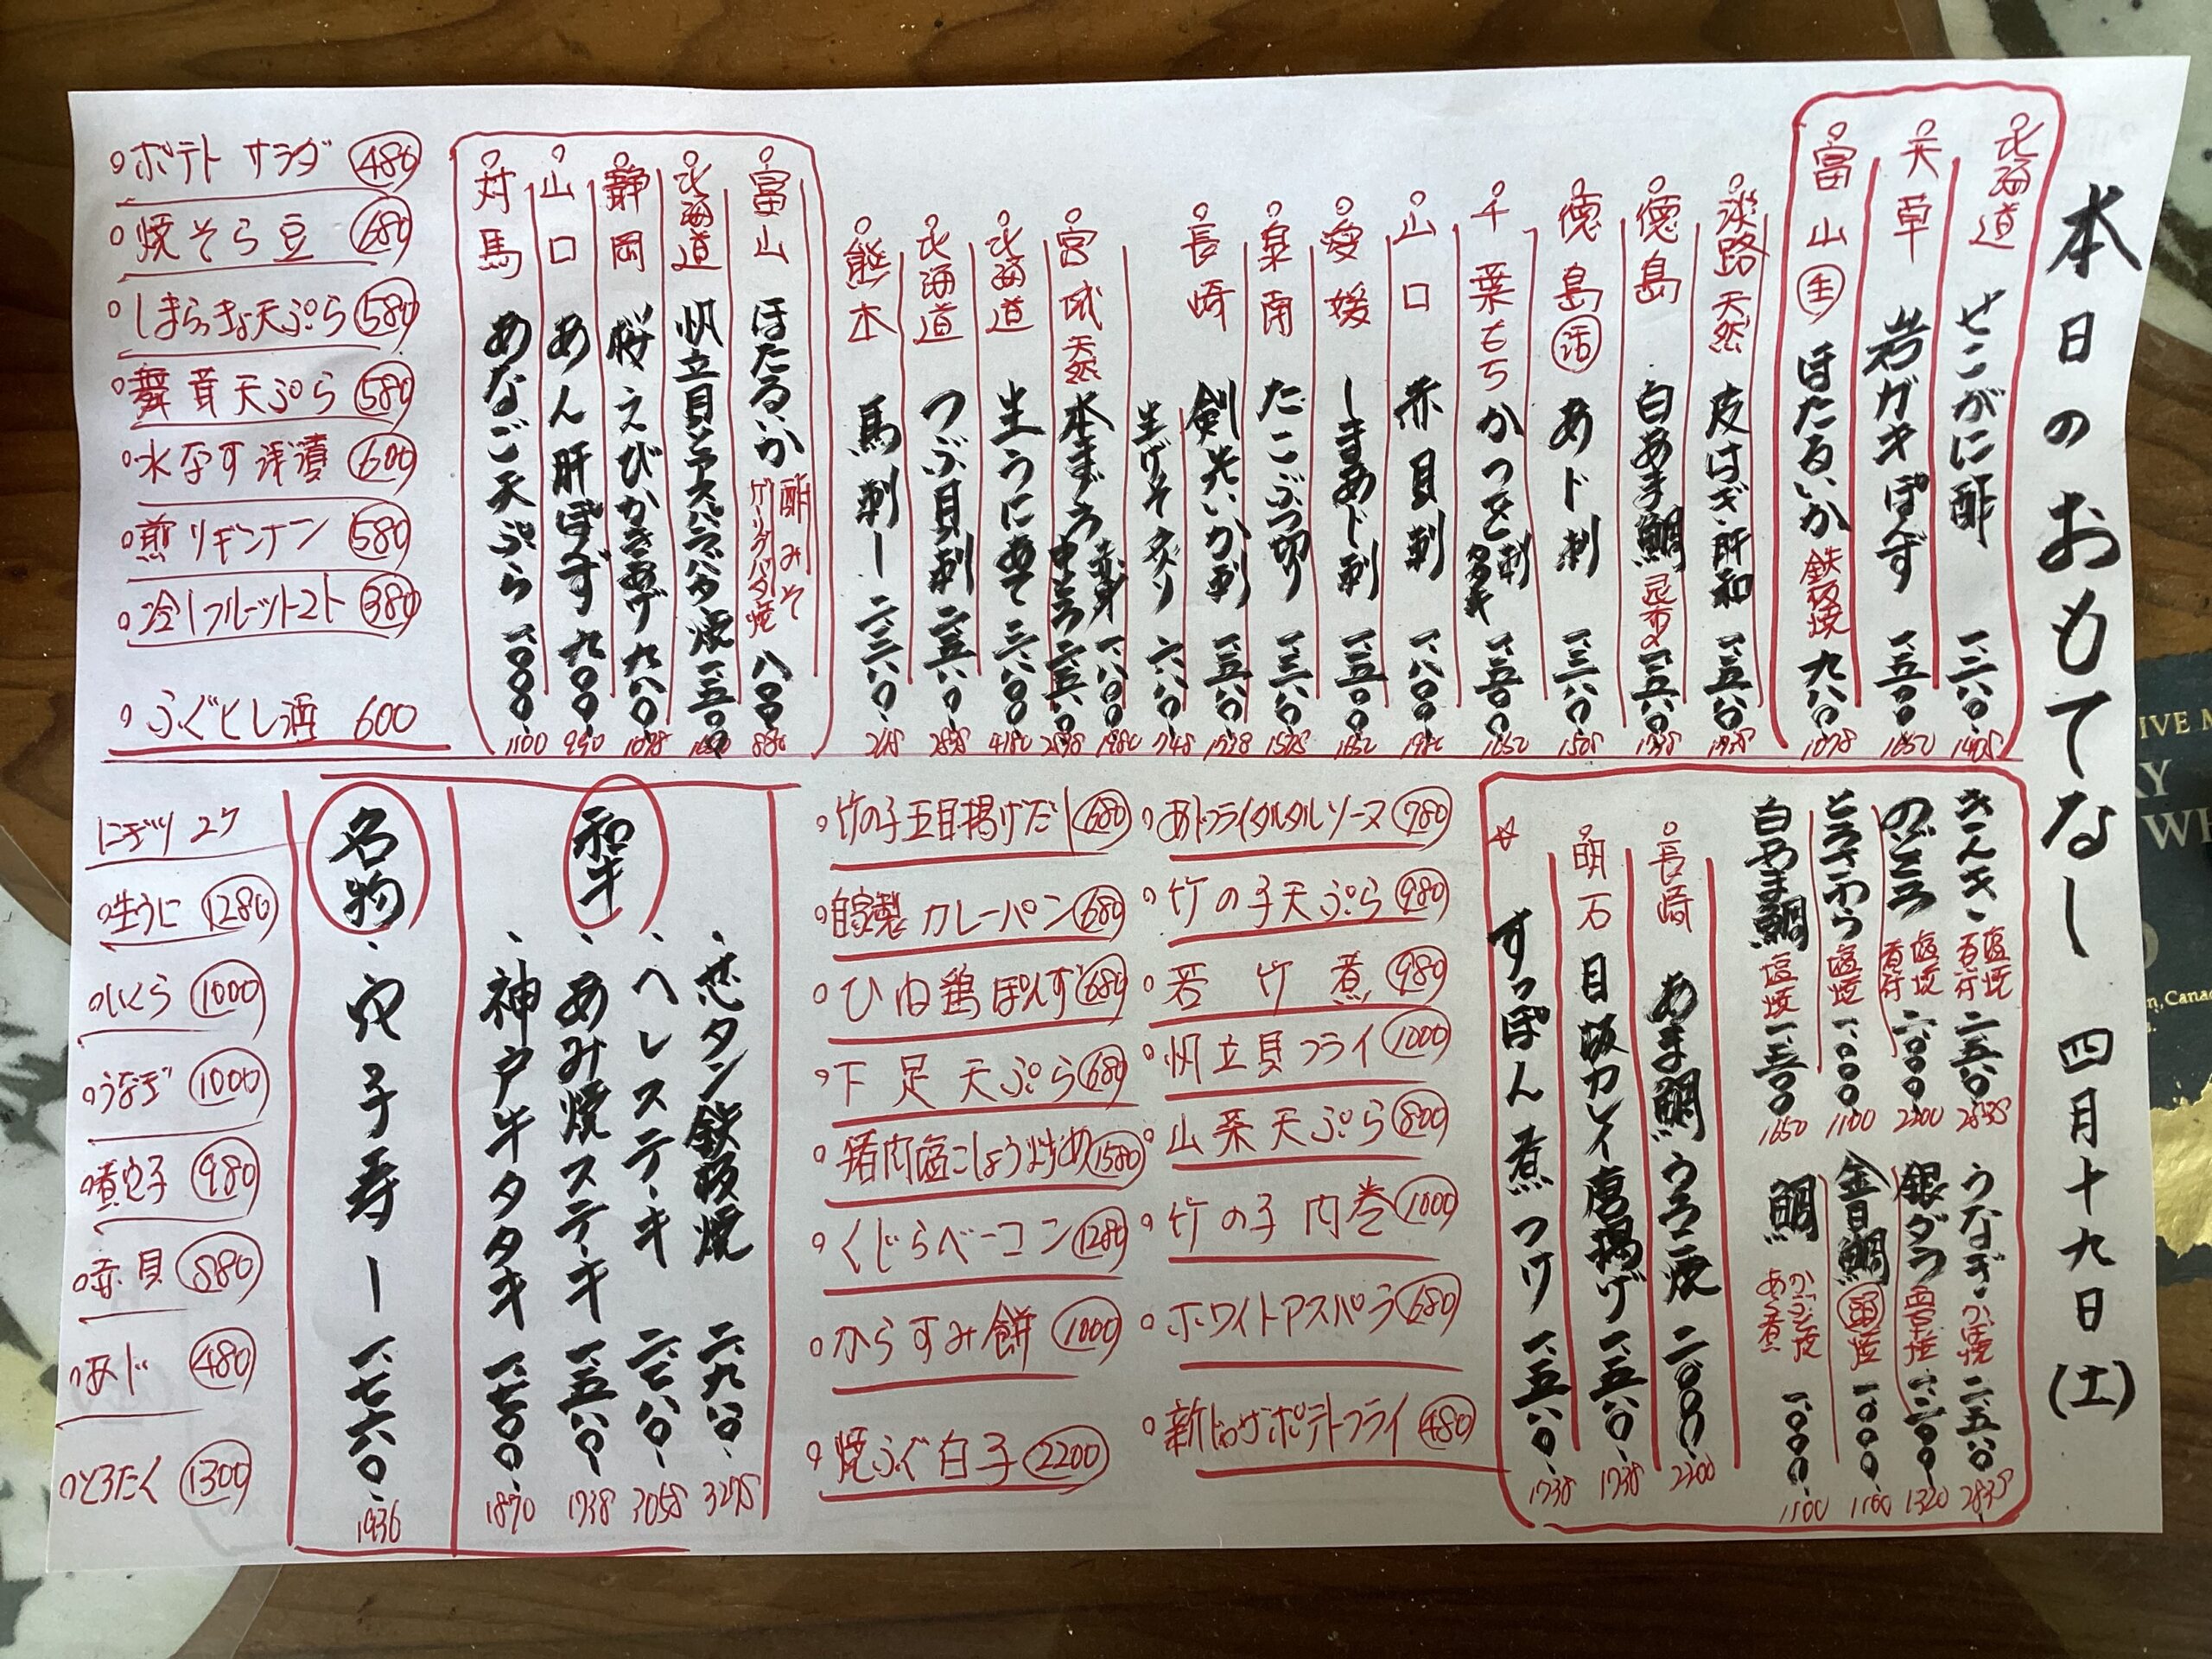 本日のおもてなし 四月十九日(土)
北海道 せこがに酢 一、三八〇、
天草 岩ガキぽんず 一、五〇〇、 1650
富山 生 ほたるいか 鉄板焼 九八〇、 1078
淡路 天然 皮はぎ・肝和
徳島 白あま鯛 昆布〆 一、五八〇、 1738
徳島 活 あじ刺 一、三八〇、
千葉 もち かつを 刺 タタキ 一、五〇〇 1650
山口 赤貝刺 一、八〇〇、 1980
愛媛 しまあじ刺 一、五〇〇 1650
泉南 たこぶつ切り 一、三八〇、
長崎 剣先いか刺 一、五八〇、 1738
生げそ炙り 六八〇、 748
宮城 天然 本まぐろ 赤身 一、八〇〇、 1980
中とろ 二、五八〇
北海道 生うにあて 三、八〇〇、 4180
北海道 つぶ貝刺 二、五八〇、
熊本 馬刺し
富山 ほたるいか 酢みそ ガーリックバター焼 八〇〇、 880
北海道 帆立貝とアスパラバター焼 一、五〇〇
静岡 桜えびかきあげ 九八〇、 1078
山口 あん肝ぽんず 九〇〇、 990
対馬 あなご天ぷら 一、〇〇〇、 1100
ポテトサラダ 480
焼そら豆 680
しまらっきょ天ぷら 580
舞茸天ぷら 580
水なす浅漬 600
煎りギンナン 580
冷しフルーツトマト 380
ふぐヒレ酒 600
きんき 塩焼 若狭焼 二、五八〇、 2838
のどぐろ 塩焼 若狭焼 二、〇〇〇、 2200
とろさわら 塩焼 一、〇〇〇、 1100
白あま鯛 塩焼 一、五〇〇 1650
うなぎ かば焼 二、五八〇 2838
銀ダラ 西京焼 一、二〇〇、 1320
金目鯛 西京焼 一、〇〇〇、 1100
鯛 かぶと焼 あら煮 一、〇〇〇、 1100
長崎 あま鯛うろこ焼 二、〇〇〇、 2200
明石 目板カレイ唐揚げ 一、五八〇、 1738
すっぽん煮つけ 一、五八〇、 1738
あじフライタルタルソース 780
竹の子天ぷら 980
若竹煮 980
帆立貝フライ 1000
山菜天ぷら 800
竹の子肉巻 1000
ホワイトアスパラ 680
新じゃがポテトフライ 480
竹の子五目揚げだし 680
自家製カレーパン 680
ひね鶏ぽんず 680
下足天ぷら 680
猪肉塩こしょう炒め 1580
くじらベーコン 1280
からすみ餅 1000
焼ふぐ白子 2200
和牛
芯タン鉄板焼 二、九八〇、 3278
ヘレステーキ 二、七八〇、 3058
あみ焼ステーキ 一、五八〇、 1738
神戸牛タタキ 一、七〇〇、 1870
名物
穴子寿し 一、七六〇、 1936
にぎり 2ケ
生うに 1280
いくら 1000
うなぎ 1000
煮穴子 980
赤貝 880
あじ 480
とろたく 1300